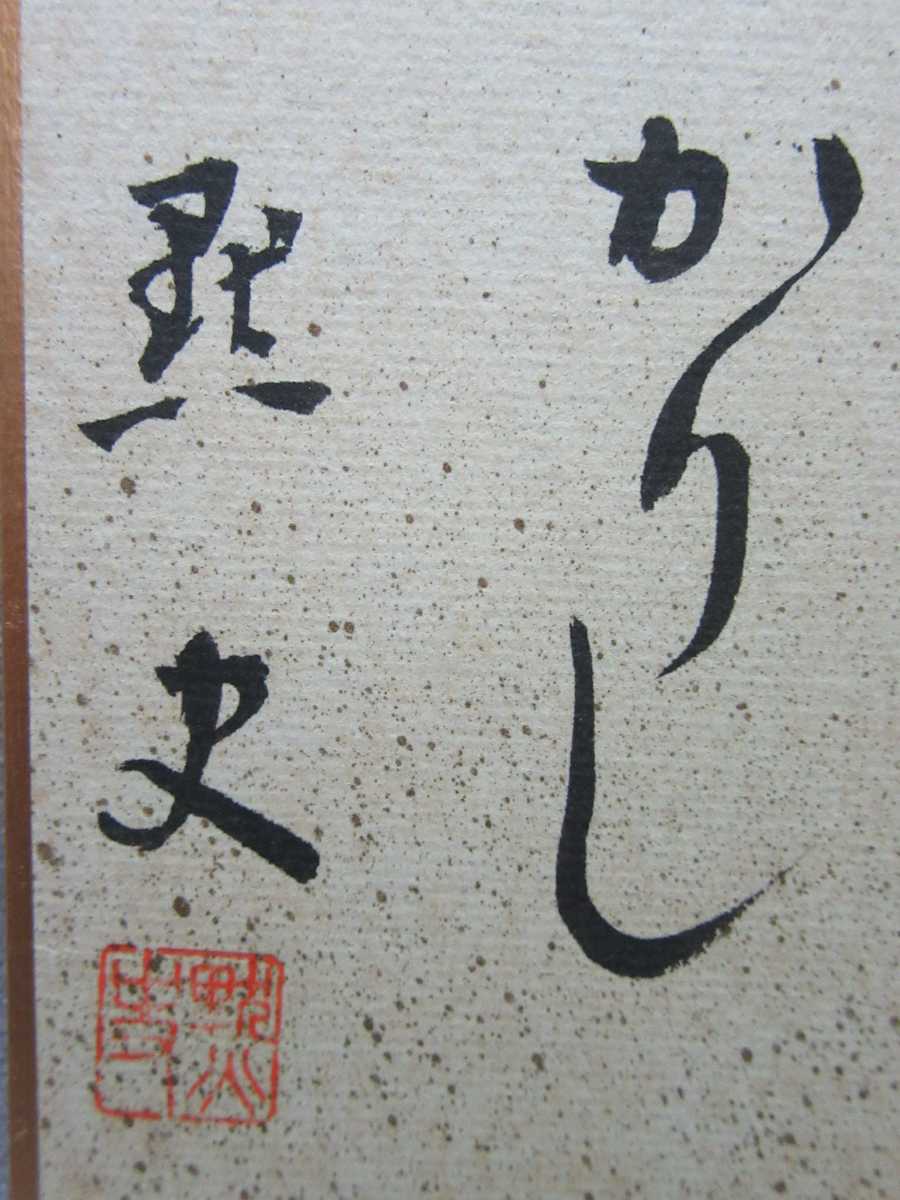 かりし
黙史